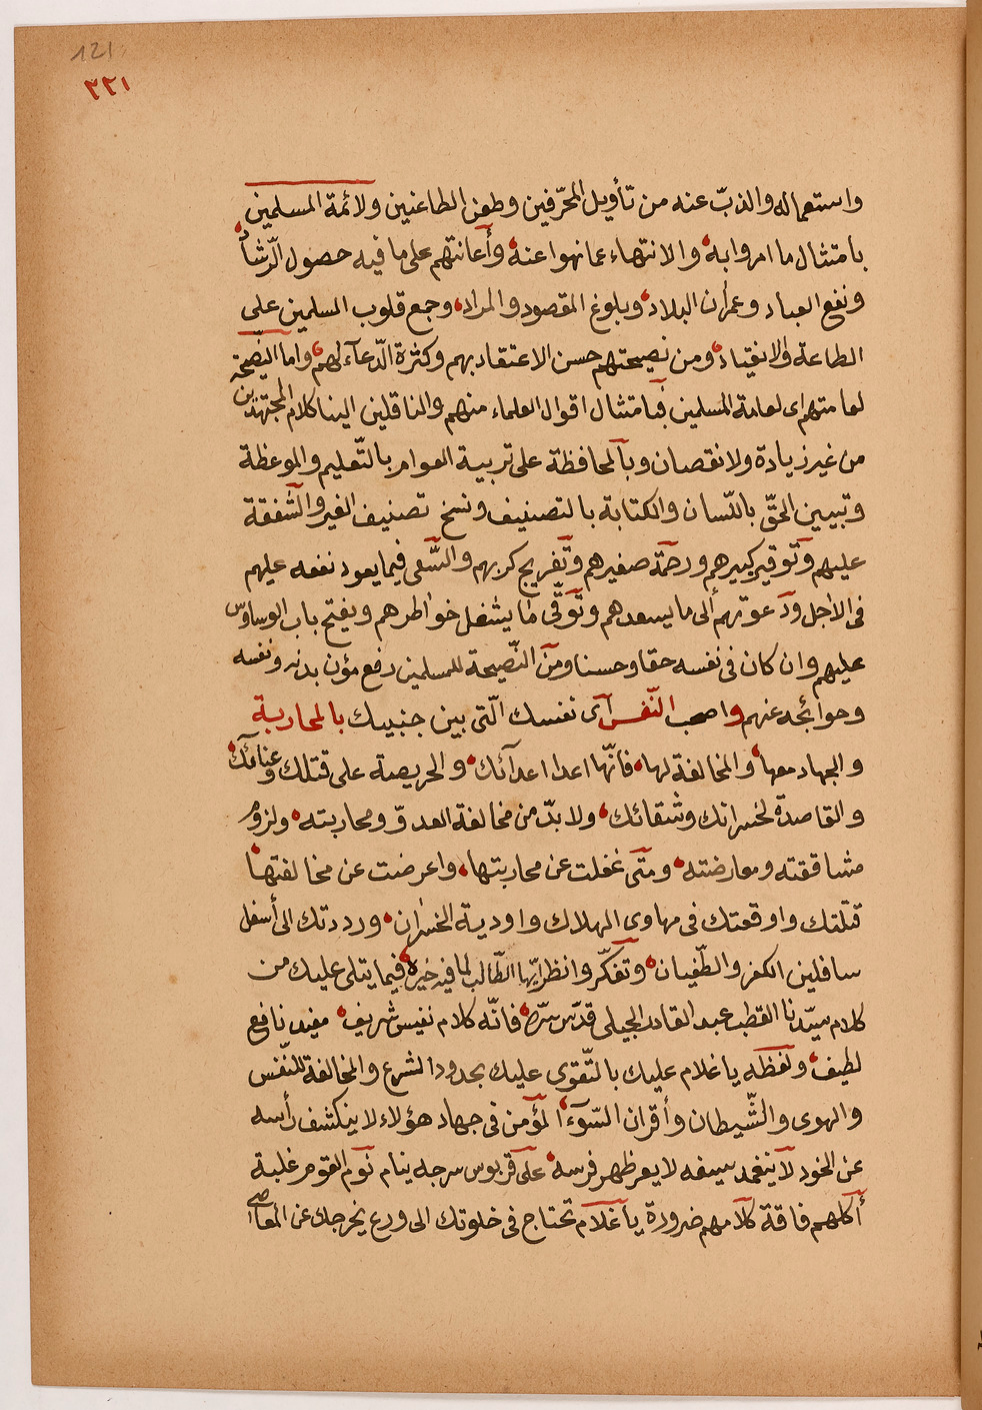 121
٣٢١
واستعماله والذبّ عنه من تأويل المحرّفين وطعن الطاعنين ولائمة المسلمين
بامتثال ما امروا به والانتهاء عما نهوا عنه وأعانتهم على ما فيه حصول الرّشاد
ونفع العباد وعمران البلاد وبلوغ المقصود والمراد وجمع قلوب المسلمين على
الطاعة والانقياد ومن نصيحتهم حسن الاعتقاد بهم وكثرة الدّعآء لهم واما النّصيحة
لعامتهم اى لعامة المسلمين فبامتثال اقوال العلماء منهم والناقلين الينا كلام المجتهدين
من غير زيادة ولا نقصان وبالمحافظة على تربية العوام بالتّعليم والموعظة
وتبيين الحقّ باللّسان والكتابة بالتصنيف ونسخ تصنيف الغير والشّفقة
عليهم وتوقير كبيرهم ورحمة صغيرهم وتفريج كربهم والسّعى فيما يعود نفعه عليهم
فى الاجل ودعوتهم ألى ما يسعدهم وتوقّى ما يشغل خواطرهم ويفتح باب الوساوس
عليهم وان كان فى نفسه حقا وحسنا ومن النّصيحة للمسلمين رفع مؤن بدنه ونفسه
وحوائجه عنهم واصحب النّفس أى نفسك الّتى بين جنبيك بالمحاربة
والجهاد معها والمخالفة لها فانّها اعدا اعدآئك والحريصة على قتلك وعنائك
والقاصدة لخسرانك وشقائك ولا بدّ من مخالفة العدوّ ومحاربته ولزوم
مشاققته ومعارضته ومتى غفلت عن محاربتها واعرضت عن مخالفتها
قتلتك واوقعتك فى مهاوى الهلاك واودية الخسران ورددتك الى أسفل
سافلين الكفر والطّغيان وتفكّر وانظر ايّها الطّالب لما فيه خيره فيما يتلى عليك من
كلام سيّدنا القطب عبد القادر الجيلى قدّس سرّه فانّه كلام نفيس شريف مفيد نافع
لطيف ولفظه يا غلام عليك بالتّقوى عليك بحدود الشرع والمخالفة للنّفس
والهوى والشّيطان وأقران السّوء المؤمن فى جهاد هؤلاء لا ينكشف رأسه
عن الخود لا ينغمد سيفه لا يعر ظهر فرسه على قربوس سرجه ينام نوم القوم غلبة
أكلهم فاقة كلامهم ضرورة يا غلام تحتاج فى خلوتك الى ورع يخرجك عن المعاصى